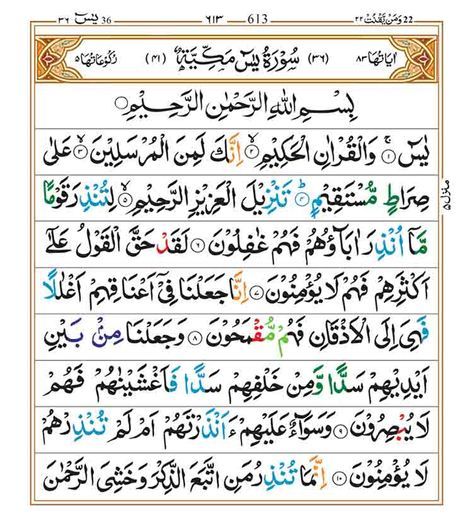 يٰسٓ 36 ٣٦ 613 ٦١٣ وَمَن يَّقۡنُتۡ 22 ٢٢
اٰیَاتُهَا ٨٣ (٣٦) سُوْرَةُ يٰسٓ مَكِّيَّةٌ (٤١) رُكُوْعَاتُهَا ٥
بِسْمِ اللّٰهِ الرَّحْمٰنِ الرَّحِيْمِ
يٰسٓ ۝١ وَالْقُرْاٰنِ الْحَكِيْمِ ۝٢ اِنَّكَ لَمِنَ الْمُرْسَلِيْنَ ۝٣ عَلٰى
صِرَاطٍ مُّسْتَقِيْمٍ ۝٤ تَنْزِيْلَ الْعَزِيْزِ الرَّحِيْمِ ۝٥ لِتُنْذِرَ قَوْمًا
مَّآ اُنْذِرَ اٰبَآؤُهُمْ فَهُمْ غٰفِلُوْنَ ۝٦ لَقَدْ حَقَّ الْقَوْلُ عَلٰٓى
اَكْثَرِهِمْ فَهُمْ لَا يُؤْمِنُوْنَ ۝٧ اِنَّا جَعَلْنَا فِيْٓ اَعْنَاقِهِمْ اَغْلٰلًا
فَهِيَ اِلَى الْاَذْقَانِ فَهُمْ مُّقْمَحُوْنَ ۝٨ وَجَعَلْنَا مِنْۢ بَيْنِ
اَيْدِيْهِمْ سَدًّا وَّمِنْ خَلْفِهِمْ سَدًّا فَاَغْشَيْنٰهُمْ فَهُمْ
لَا يُبْصِرُوْنَ ۝٩ وَسَوَآءٌ عَلَيْهِمْ ءَاَنْذَرْتَهُمْ اَمْ لَمْ تُنْذِرْهُمْ
لَا يُؤْمِنُوْنَ ۝١٠ اِنَّمَا تُنْذِرُ مَنِ اتَّبَعَ الذِّكْرَ وَخَشِيَ الرَّحْمٰنَ
منزل ٥